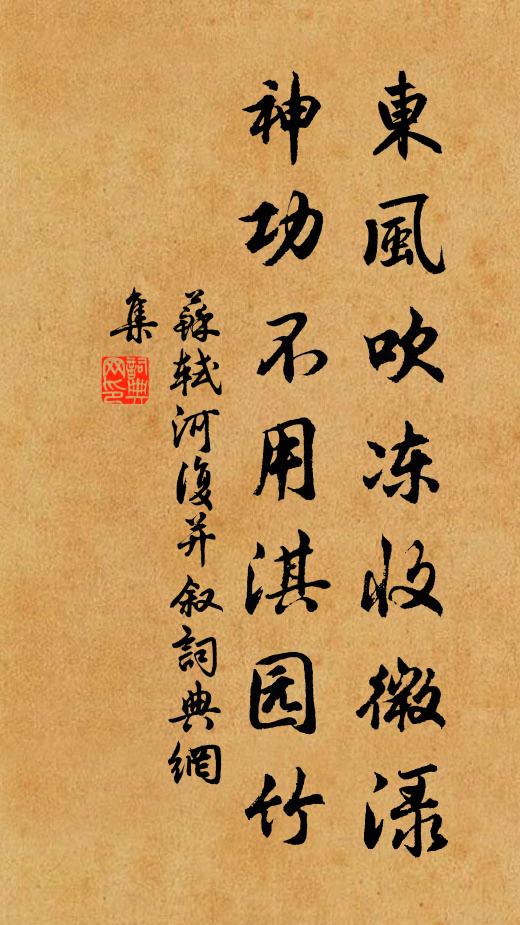 東風吹冻收微渌
神功不用淇园竹
蘇軾河復并叙詞典網
集
詞典网印